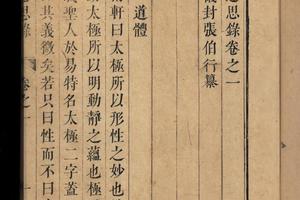 思錄卷之一
封張伯行纂
道體
軒曰太極所以形性之妙也
太極所以明動靜之蘊也極
聖人於易特名太極二字蓋
其義微矣若只曰性而不曰
思錄 卷之一